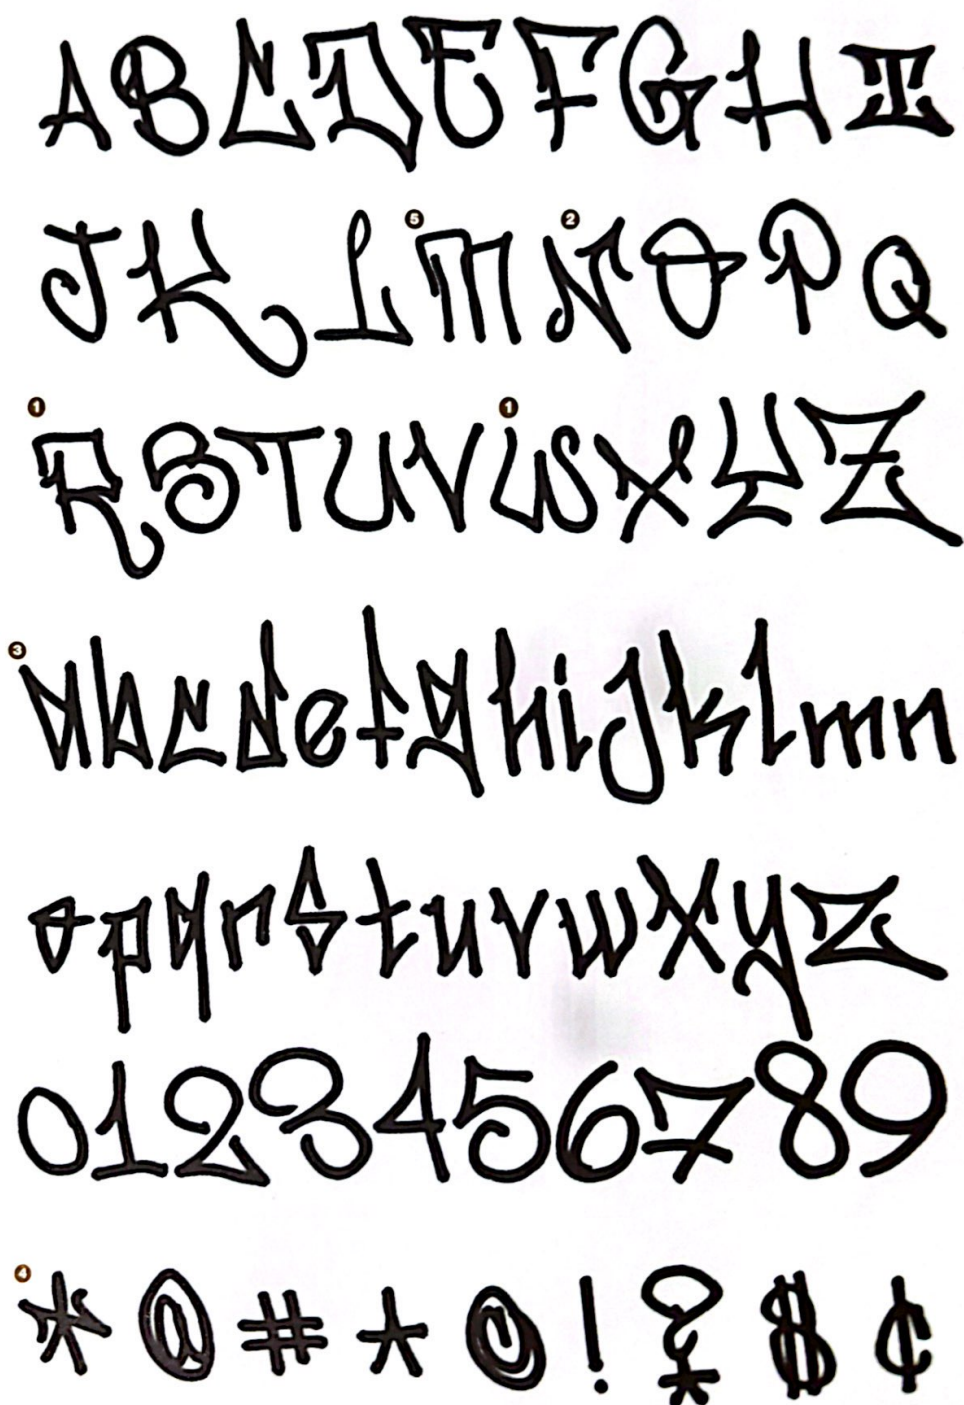 ABCDEFGHI
JKL❺M❷NOPQ
❶RSTUV❶WXYZ
❸abcdefghijklmn
opqrstuvwxyz
0123456789
❹*@#*©!?$¢